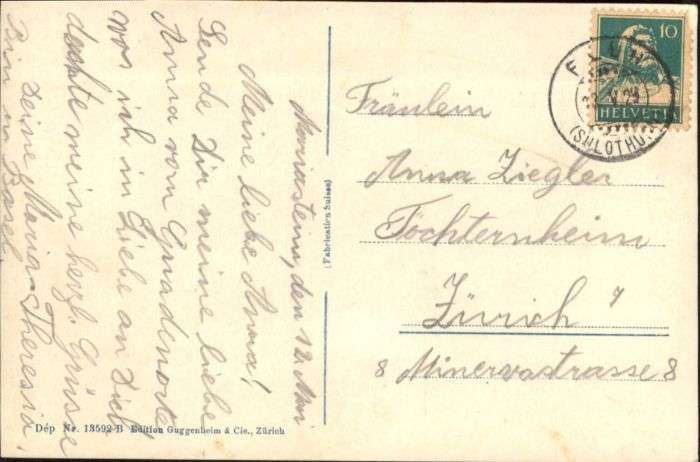 Mariastein, den 12. Mai
Meine liebe Anna!
Sende Dir meine liebe
Anna vom Gnadenorte
wo ich in Liebe an Dich
dachte meine herzl. Grüsse
Deine Maria Theresia.
Bin in Basel.
Fräulein
Anna Ziegler
Töchternheim
Zürich 7
8 Minervastrasse 8
(Fabrication Suisse)
Dép Nr. 13592 B Edition Guggenheim & Cie., Zürich
10
HELVETIA